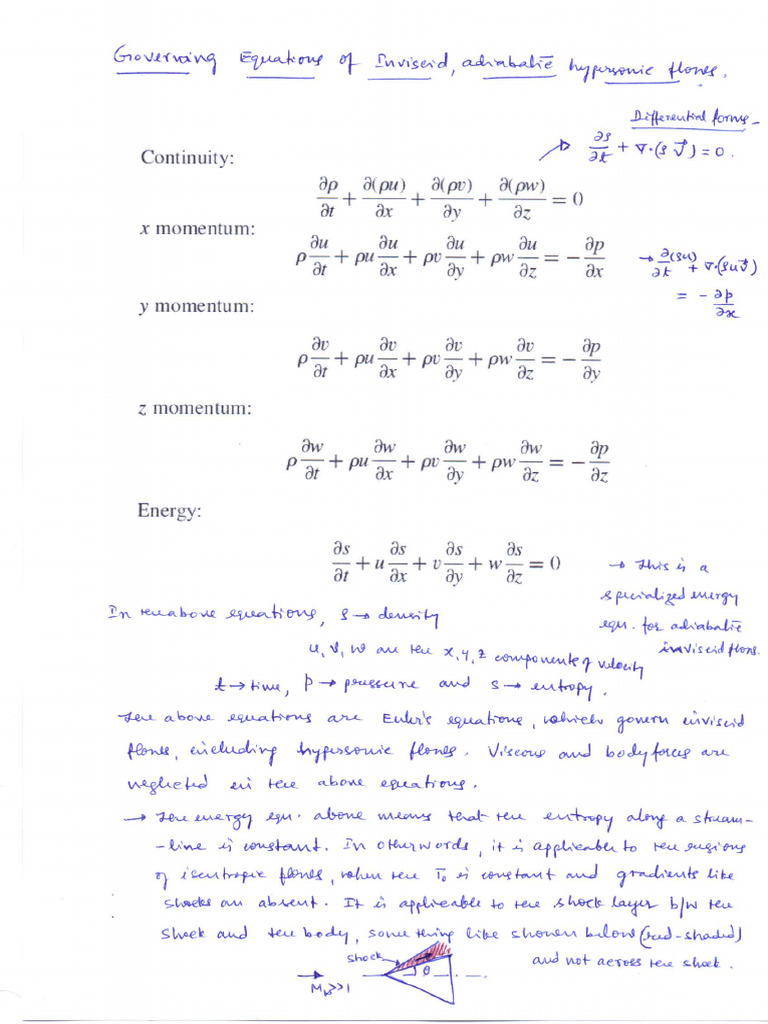 Governing Equations of Inviscid, adiabatic hypersonic flows.
Differential forms -
∂ρ/∂t + ∇·(ρV⃗) = 0.
Continuity:
∂ρ/∂t + ∂(ρu)/∂x + ∂(ρv)/∂y + ∂(ρw)/∂z = 0
x momentum:
ρ ∂u/∂t + ρu ∂u/∂x + ρv ∂u/∂y + ρw ∂u/∂z = − ∂p/∂x
→ ∂(ρu)/∂t + ∇·(ρuV⃗)
= − ∂p/∂x
y momentum:
ρ ∂v/∂t + ρu ∂v/∂x + ρv ∂v/∂y + ρw ∂v/∂z = − ∂p/∂y
z momentum:
ρ ∂w/∂t + ρu ∂w/∂x + ρv ∂w/∂y + ρw ∂w/∂z = − ∂p/∂z
Energy:
∂s/∂t + u ∂s/∂x + v ∂s/∂y + w ∂s/∂z = 0
→ This is a
specialized energy
eqn. for adiabatic
inviscid flows.
In the above equations, ρ → density
u, v, w are the x, y, z components of velocity
t → time, p → pressure and s → entropy.
The above equations are Euler's equations, which govern inviscid
flows, including hypersonic flows. Viscous and body forces are
neglected in the above equations.
→ The energy eqn. above means that the entropy along a stream-
-line is constant. In other words, it is applicable to the regions
of isentropic flows, when the T₀ is constant and gradients like
shocks are absent. It is applicable to the shock layer b/w the
shock and the body, something like shown below (red-shaded)
and not across the shock.
shock
θ
M∞>>1